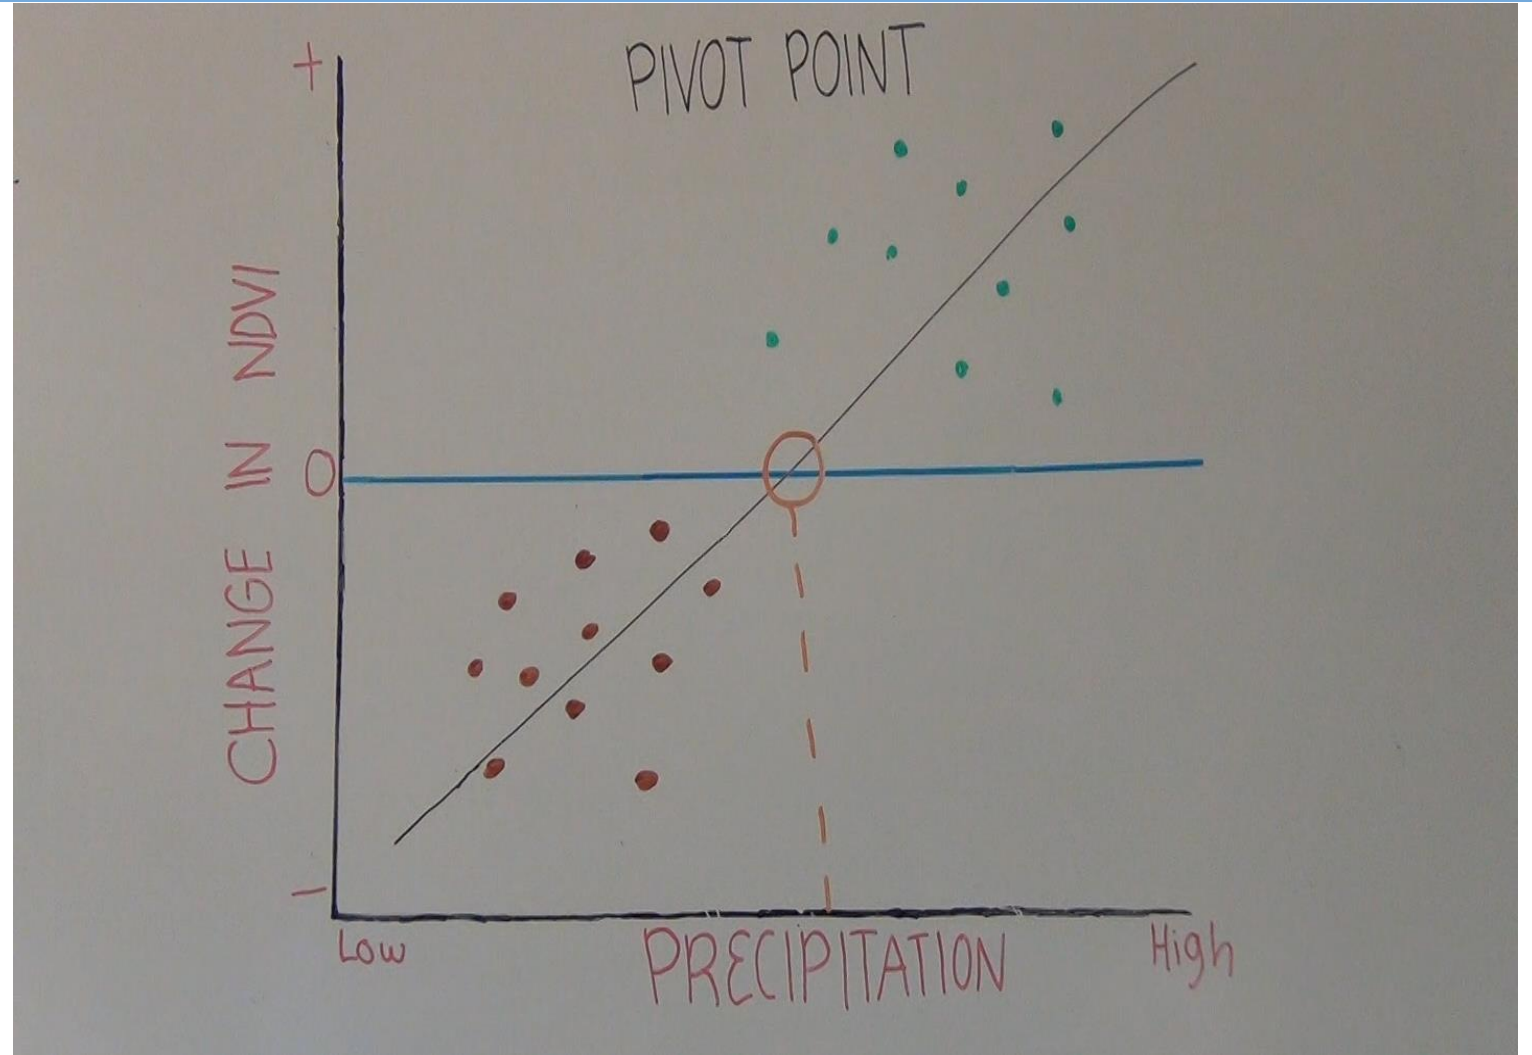 PIVOT POINT
+
CHANGE IN NDVI
0
-
Low
PRECIPITATION
High